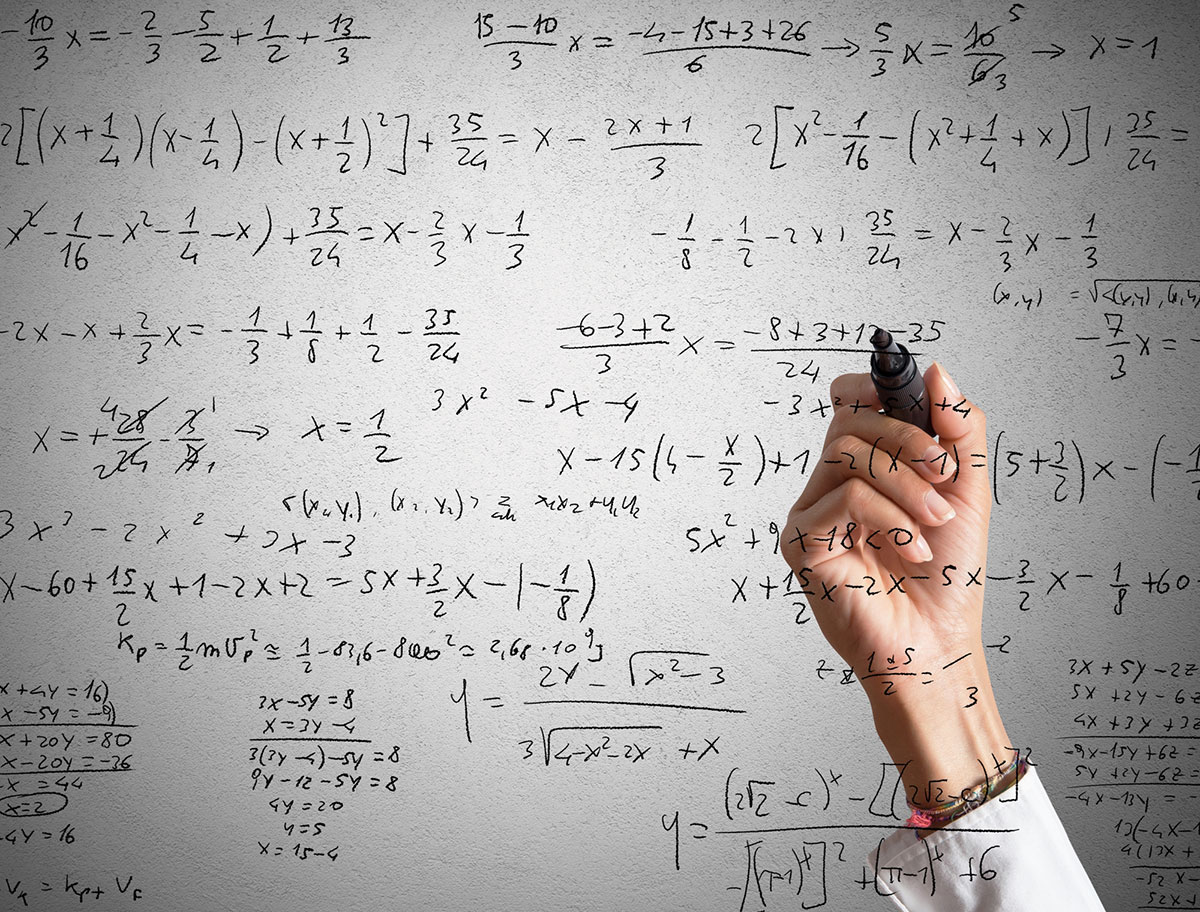 -10/3 x = -2/3 - 5/2 + 1/2 + 13/3
15-10/3 x = -4-15+3+26/6 → 5/3 x = 10/6 5/3 → x = 1
2[(x+1/4)(x-1/4)-(x+1/2)²]+35/24 = x - 2x+1/3
2[x²-1/16-(x²+1/4+x)] 35/24 =
x²-1/16-x²-1/4-x)+35/24 = x-2/3 x-1/3
-1/8-1/2-2x 35/24 = x-2/3 x-1/3
(x,y) = √<(x,y),(x,y)
-2x-x+2/3 x = -1/3+1/8+1/2-35/24
-6-3+2/3 x = -8+3+12-35/24
-7/3 x = -
x = +28/24 - 3/7 → x = 1/2
3x² -5x -4
-3x²+5x+4
x-15(4-x/2)+1-2(x-1)=(5+3/2)x-(-1
3x³ - 2x² + 3x - 3
5x²+9x-18<0
x-60+15/2 x+1-2x+2 = 5x+3/2 x-(-1/8)
x+15/2 x-2x-5x-3/2 x-1/8+60
Kp = 1/2 mVp² ≅ 1/2 -83,6-8000² ≃ 2,68·10⁹J
x+4y=16)
x-5y=-9)
x+20y=80
x-20y=-36
-x =44
x=2
-4y=16
3x-5y=8
x=3y-4
3(3y-4)-5y=8
9y-12-5y=8
4y=20
y=5
x=15-4
y = 2x-√x²-3 / 3√4-x²-2x +x
3x+5y-2z
5x+2y-6z
4x+3y+3z
-9x-15y+6z=
5y+2y-6z=
-4x-13y =
13(-4x-1
4(13x+
-52x-
52x+
y = (2√2-c)ˣ-[(2√2-c)ˣ]² / -√[(π-1)ˣ]²+(π-1)ˣ+6